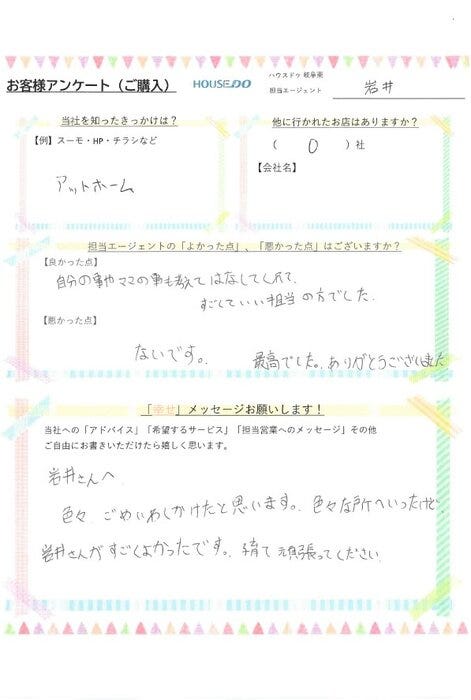 お客様アンケート（ご購入）
HOUSEDO
ハウスドゥ 岐阜東
担当エージェント 岩井
当社を知ったきっかけは？
【例】スーモ・HP・チラシなど
アットホーム
他に行かれたお店はありますか？
（ 0 ）社
【会社名】
担当エージェントの「よかった点」、「悪かった点」はございますか？
【良かった点】
自分の事やママの事も教えてはなしてくれて、
すごくていい担当の方でした。
【悪かった点】
ないです。 最高でした。ありがとうございました
「幸せ」メッセージお願いします！
当社への「アドバイス」「希望するサービス」「担当営業へのメッセージ」その他
ご自由にお書きいただけたら嬉しく思います。
岩井さんへ
色々、ごめいわくかけたと思います。色々な所へいったけど、
岩井さんがすごくよかったです。子育て頑張ってください。